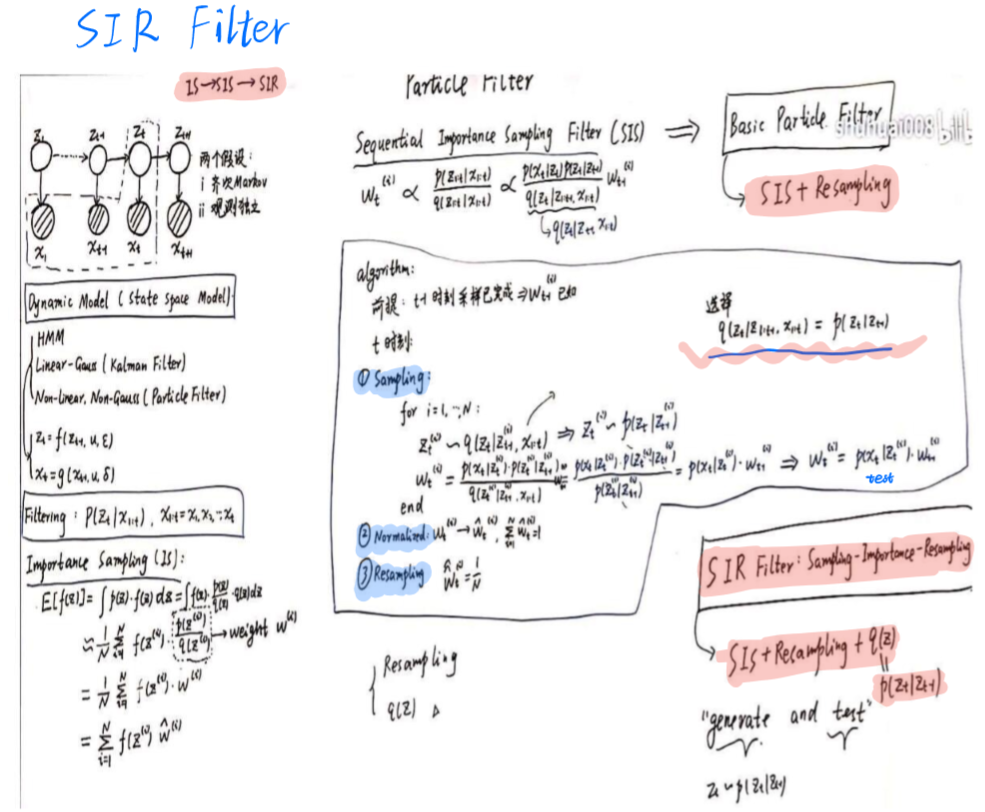 SIR Filter
IS→SIS→SIR
z₁ zₜ₋₁ zₜ zₜ₊₁
x₁ xₜ₋₁ xₜ xₜ₊₁
两个假设:
i 齐次Markov
ii 观测独立
Dynamic Model (State Space Model)
HMM
Linear-Gauss (Kalman Filter)
Non-Linear, Non-Gauss (Particle Filter)
zₜ=f(zₜ₋₁, u, ε)
xₜ=g(zₜ₋₁, u, δ)
Filtering: P(zₜ|x₁:ₜ), x₁:ₜ=x₁,x₂,…,xₜ
Importance Sampling (IS):
E[f(z)]=∫p(z)·f(z)dz=∫f(z)·p(z)/q(z)·q(z)dz
≈1/N ∑ᵢ₌₁ᴺ f(z⁽ⁱ⁾)·p(z⁽ⁱ⁾)/q(z⁽ⁱ⁾) → weight w⁽ⁱ⁾
=1/N ∑ᵢ₌₁ᴺ f(z⁽ⁱ⁾)·w⁽ⁱ⁾
=∑ᵢ₌₁ᴺ f(z⁽ⁱ⁾)ŵ⁽ⁱ⁾
Particle Filter
Sequential Importance Sampling Filter (SIS) ⇒ Basic Particle Filter
SIS+Resampling
wₜ⁽ⁱ⁾ ∝ p(z₁:ₜ|x₁:ₜ)/q(z₁:ₜ|x₁:ₜ) ∝ p(xₜ|zₜ)p(zₜ|zₜ₋₁)/q(zₜ|z₁:ₜ₋₁, x₁:ₜ) wₜ₋₁⁽ⁱ⁾
↳q(zₜ|zₜ₋₁, x₁:ₜ)
algorithm:
前提: t-1时刻采样已完成⇒wₜ₋₁⁽ⁱ⁾已知
t时刻:
选择
q(zₜ|z₁:ₜ₋₁, x₁:ₜ) = p(zₜ|zₜ₋₁)
① Sampling:
for i=1,…,N:
zₜ⁽ⁱ⁾ ~ q(zₜ|zₜ₋₁⁽ⁱ⁾, x₁:ₜ) ⇒ zₜ⁽ⁱ⁾ ~ p(zₜ|zₜ₋₁⁽ⁱ⁾)
wₜ⁽ⁱ⁾ = p(xₜ|zₜ⁽ⁱ⁾)·p(zₜ⁽ⁱ⁾|zₜ₋₁⁽ⁱ⁾)/q(zₜ⁽ⁱ⁾|zₜ₋₁⁽ⁱ⁾, x₁:ₜ) wₜ₋₁⁽ⁱ⁾ = p(xₜ|zₜ⁽ⁱ⁾)·p(zₜ⁽ⁱ⁾|zₜ₋₁⁽ⁱ⁾)/p(zₜ⁽ⁱ⁾|zₜ₋₁⁽ⁱ⁾) = p(xₜ|zₜ⁽ⁱ⁾)·wₜ₋₁⁽ⁱ⁾ ⇒ wₜ⁽ⁱ⁾ = p(xₜ|zₜ⁽ⁱ⁾)·wₜ₋₁⁽ⁱ⁾
test
end
② Normalized: wₜ⁽ⁱ⁾→ŵₜ⁽ⁱ⁾, ∑ᵢ₌₁ᴺ ŵₜ⁽ⁱ⁾=1
③ Resampling ŵₜ⁽ⁱ⁾=1/N
Resampling
q(z)
SIR Filter: Sampling-Importance-Resampling
SIS+Resampling+q(z)
=
p(zₜ|zₜ₋₁)
"generate and test"
zₜ~p(zₜ|zₜ₋₁)